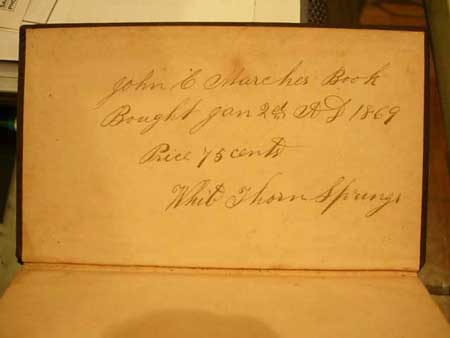 John C Marches Book
Bought Jan 2d AD 1869
Price 75 cents
Whit Thorn Springs